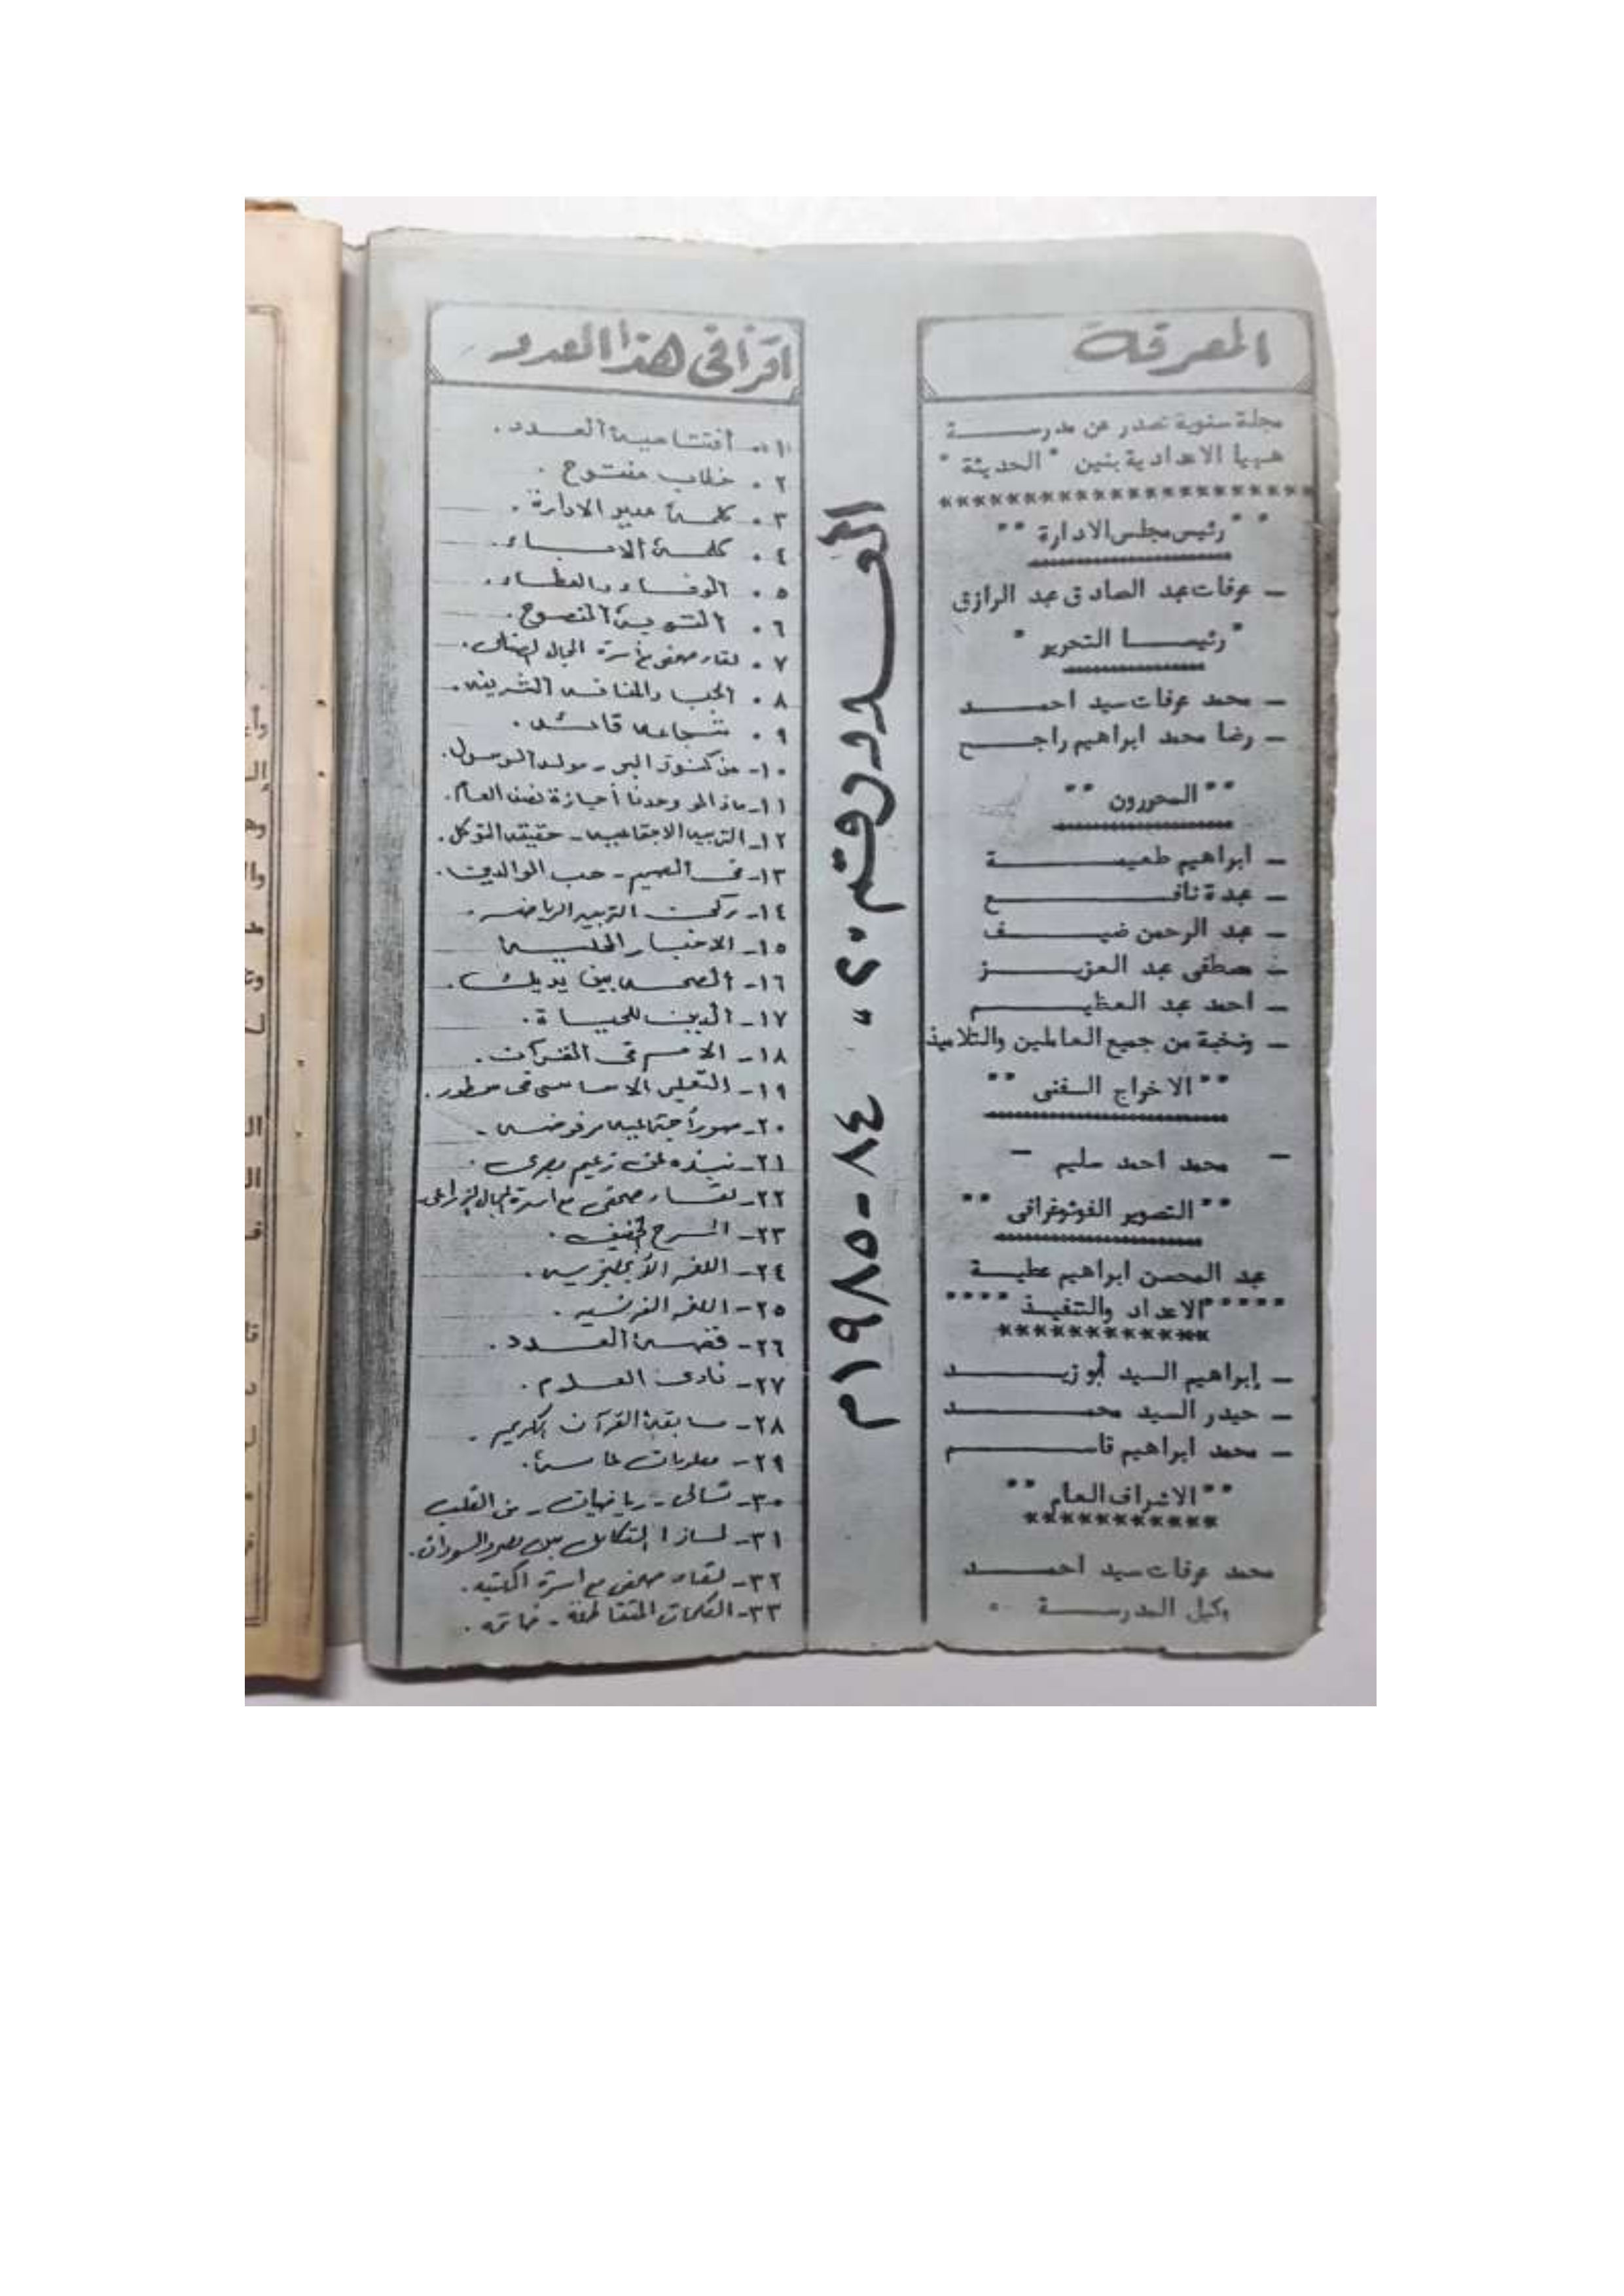 المعرفة
مجلة سنوية تصدر عن مدرسة
ههيا الاعدادية بنين " الحديثة "
**********************
" " رئيس مجلس الادارة " "
— عرفات عبد الصادق عبد الرازق
" رئيسا التحرير "
— محمد عرفات سيد احمد
— رضا محمد ابراهيم راجح
" " المحررون " "
— ابراهيم طعيمة
— عبدة نافع
— عبد الرحمن ضيف
— مصطفى عبد العزيز
— احمد عبد العظيم
— ونخبة من جميع العاملين والتلاميذ
" " الاخراج الفنى " "
— محمد احمد سليم —
" " التصوير الفوتوغرافى " "
عبد المحسن ابراهيم عطية
" " " " الاعداد والتنفيذ " " " "
************
— إبراهيم السيد أبو زيد
— حيدر السيد محمد
— محمد ابراهيم قاسم
" " الاشراف العام " "
***********
محمد عرفات سيد احمد
وكيل المدرسة
العدد رقم "٢٠" ٨٤-١٩٨٥م
اقرأ فى هذا العدد
١. أفتتاحية العدد.
٢. خطاب مفتوح.
٣. كلمة مدير الادارة.
٤. كلمة الاباء.
٥. الوفاء والعطاء.
٦. التوبة النصوح.
٧. لقاء صحفى مع أسرة المجال الصناعى.
٨. الحب والمنافسة الشريفة.
٩. شجاعة قائد.
١٠- من كنوز البر - مولد الرسول.
١١- ماذا لو وحدنا أجازة نصف العام.
١٢- التربية الاجتماعية - حقيقة التوكل.
١٣- فى الصميم - حب الوالدين.
١٤- ركن التربية الرياضية.
١٥- الاخبار المحلية
١٦- الصحة بين يديك.
١٧- الدين للحياة.
١٨- الامم فى القرآن.
١٩- التعليم الاساسى فى سطور.
٢٠- صور أجتماعية مرفوضة.
٢١- نبذه عن زعيم مصرى.
٢٢- لقاء صحفى مع اسرة المجال الزراعى.
٢٣- المسرح الخفيف.
٢٤- اللغة الأنجليزية.
٢٥- اللغة الفرنسية.
٢٦- قصة العدد.
٢٧- نادى العلوم.
٢٨- مسابقة القرآن الكريم.
٢٩- معلومات عامة.
٣٠- تسالى - رياضيات - من القلب
٣١- لماذا التكامل بين مصر والسودان.
٣٢- لقاء صحفى مع اسرة المكتبة.
٣٣- الكلمات المتقاطعة - خاتمه.